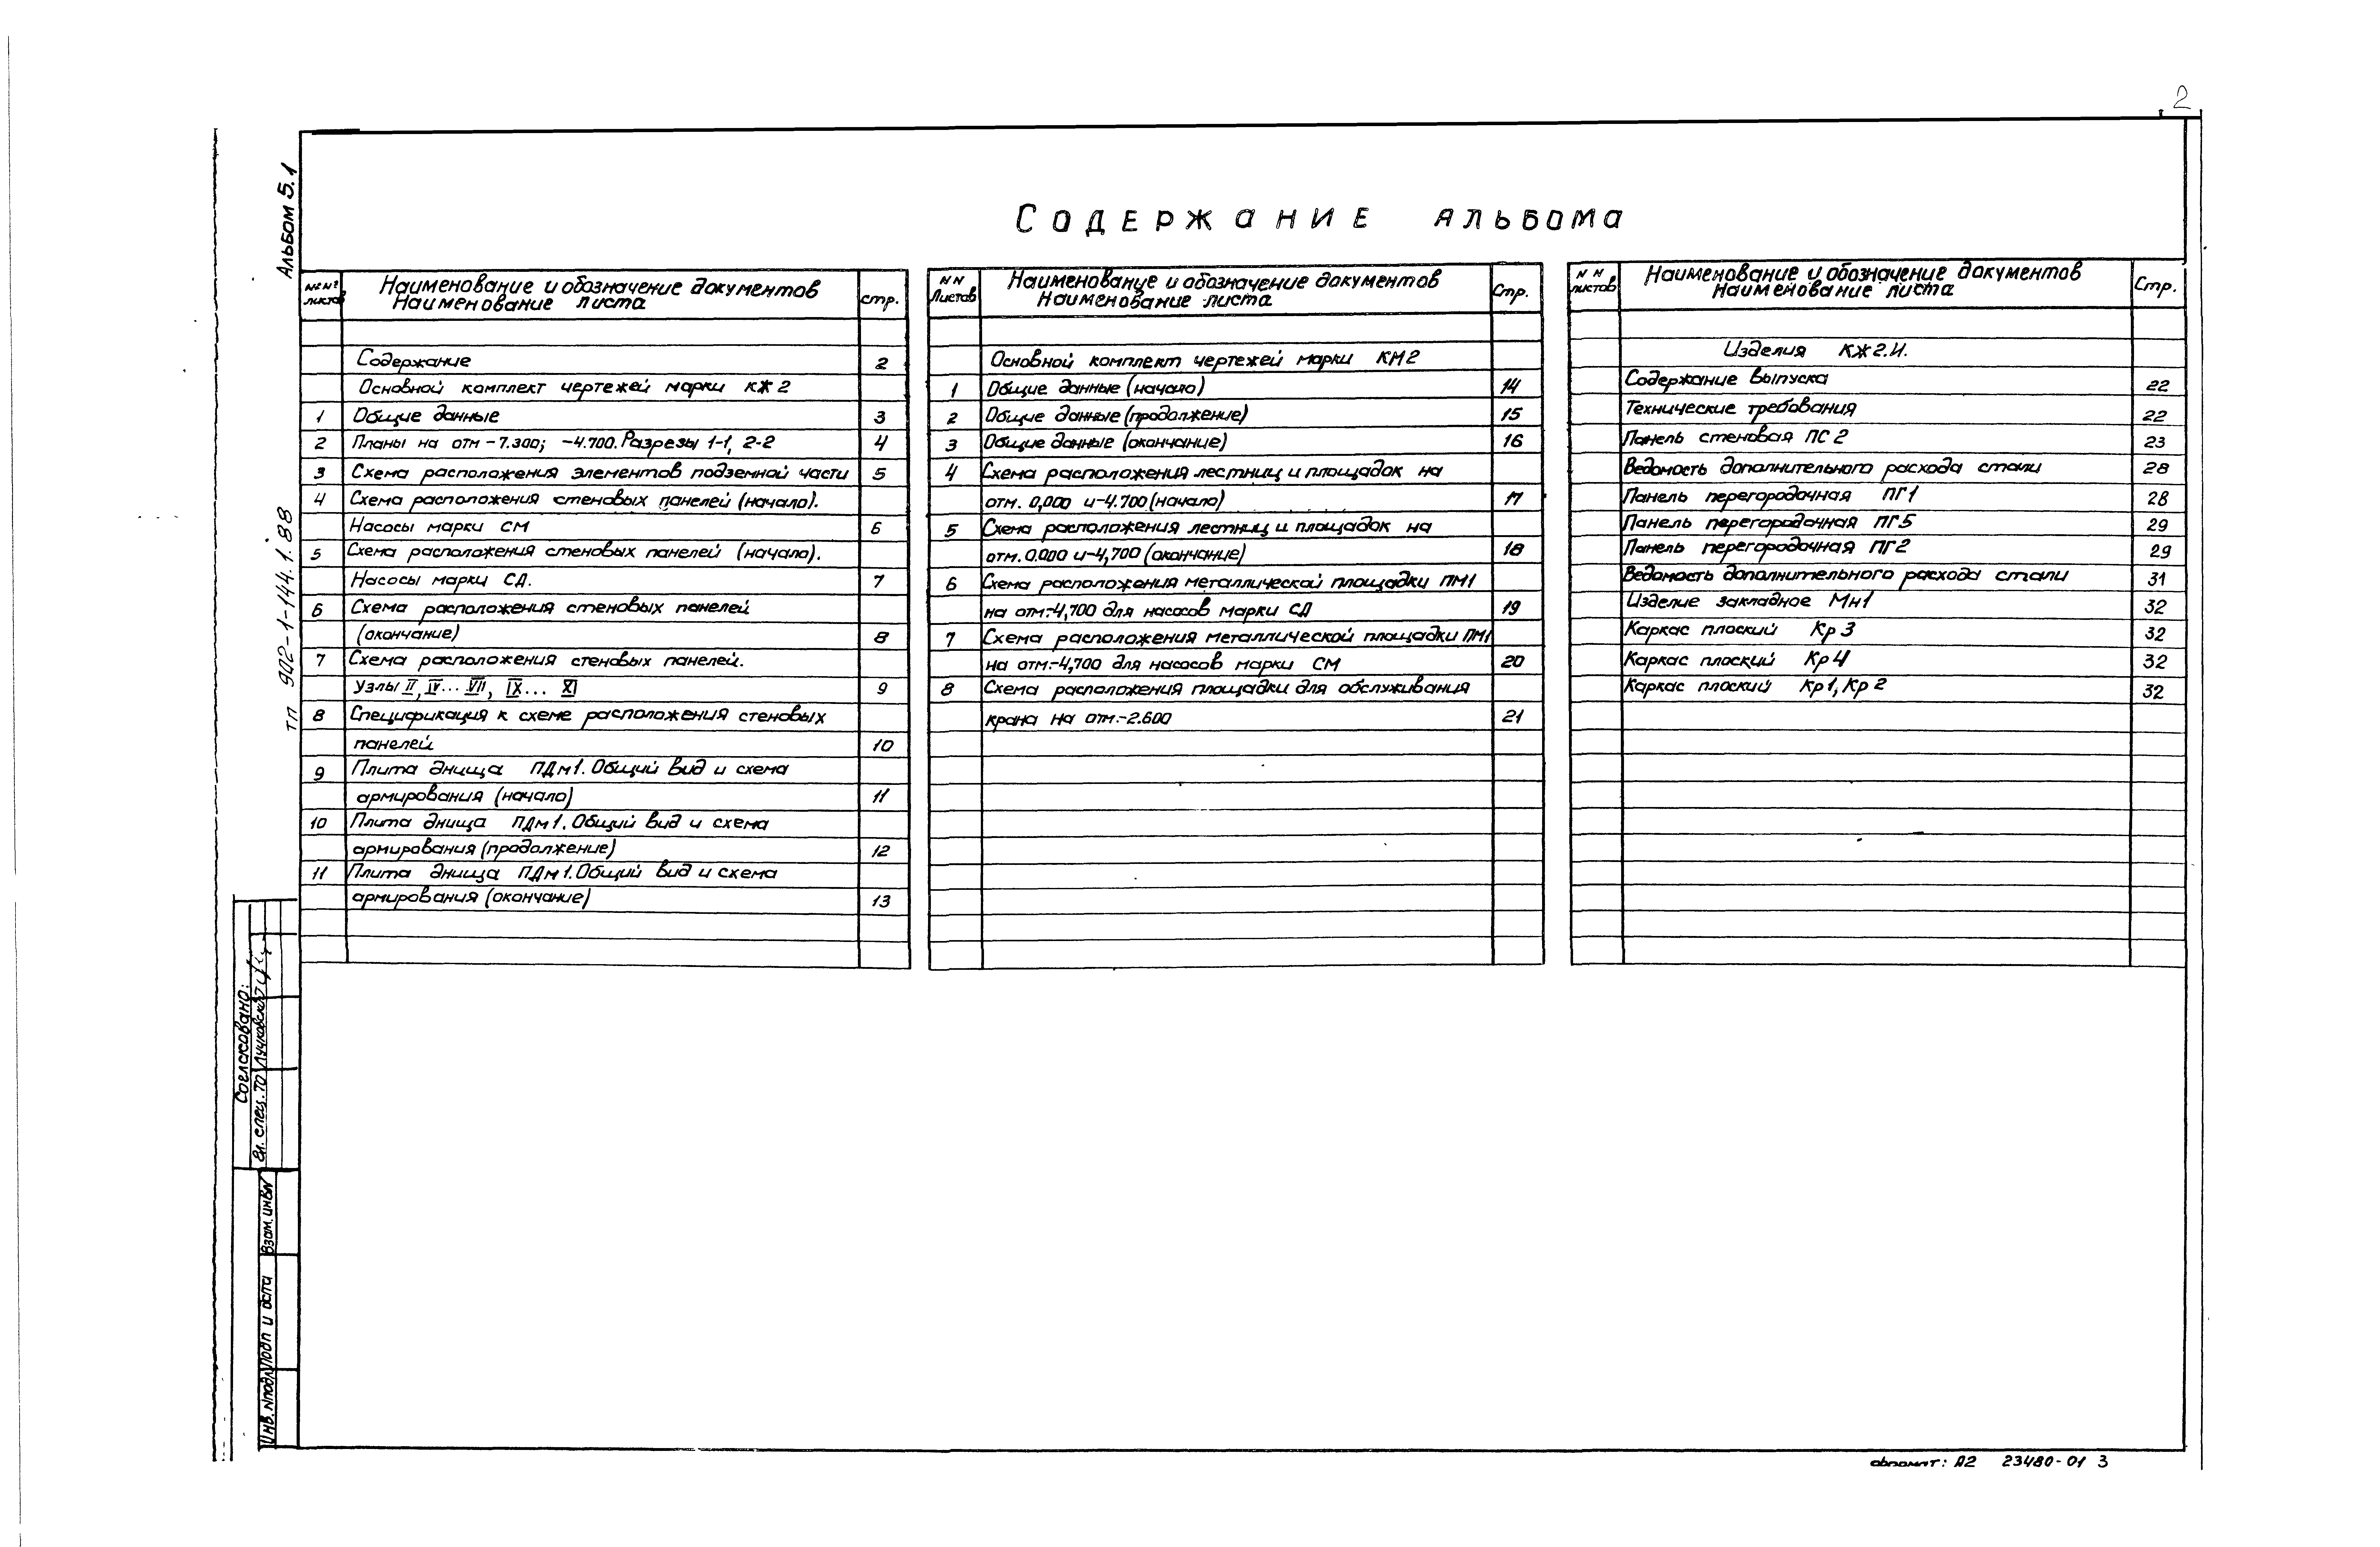 2
Альбом 5.1
Содержание альбома
№№ листов
Наименование и обозначение документов
Наименование листа
стр.
Содержание 2
Основной комплект чертежей марки КЖ 2
1 Общие данные 3
2 Планы на отм -7.300; -4.700. Разрезы 1-1, 2-2 4
3 Схема расположения элементов подземной части 5
4 Схема расположения стеновых панелей (начало).
Насосы марки СМ 6
5 Схема расположения стеновых панелей (начало).
Насосы марки СД. 7
6 Схема расположения стеновых панелей
(окончание) 8
7 Схема расположения стеновых панелей.
Узлы II, IV... VII, IX... XI 9
8 Спецификация к схеме расположения стеновых
панелей 10
9 Плита днища ПДм1. Общий вид и схема
армирования (начало) 11
10 Плита днища ПДм1. Общий вид и схема
армирования (продолжение) 12
11 Плита днища ПДм1. Общий вид и схема
армирования (окончание) 13
NN Листов
Наименование и обозначение документов
Наименование листа
Стр.
Основной комплект чертежей марки КМ2
1 Общие данные (начало) 14
2 Общие данные (продолжение) 15
3 Общие данные (окончание) 16
4 Схема расположения лестниц и площадок на
отм. 0,000 и -4.700 (начало) 17
5 Схема расположения лестниц и площадок на
отм. 0.000 и -4,700 (окончание) 18
6 Схема расположения металлической площадки ПМ1
на отм.-4,700 для насосов марки СД 19
7 Схема расположения металлической площадки ПМ1
на отм.-4,700 для насосов марки СМ 20
8 Схема расположения площадки для обслуживания
крана на отм.-2.600 21
NN листов
Наименование и обозначение документов
Наименование листа
Стр.
Изделия КЖ2.И.
Содержание выпуска 22
Технические требования 22
Панель стеновая ПС 2 23
Ведомость дополнительного расхода стали 28
Панель перегородочная ПГ1 28
Панель перегородочная ПГ5 29
Панель перегородочная ПГ2 29
Ведомость дополнительного расхода стали 31
Изделие закладное Мн1 32
Каркас плоский Кр3 32
Каркас плоский Кр4 32
Каркас плоский Кр1, Кр2 32
тп 902-1-144.1.88
Согласовано:
Гл. спец. ТО Лучковский
Взам. инв N
Подп и дата
Инв. N подл
формат: А2 23480-01 3